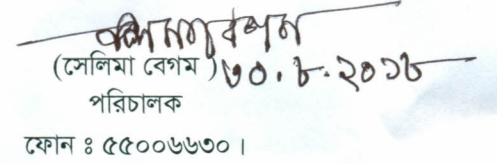 সেলিমা বেগম
(সেলিমা বেগম) ৩০.৮.২০১৮
পরিচালক
ফোন ঃ ৫৫০০৬৬৩০।